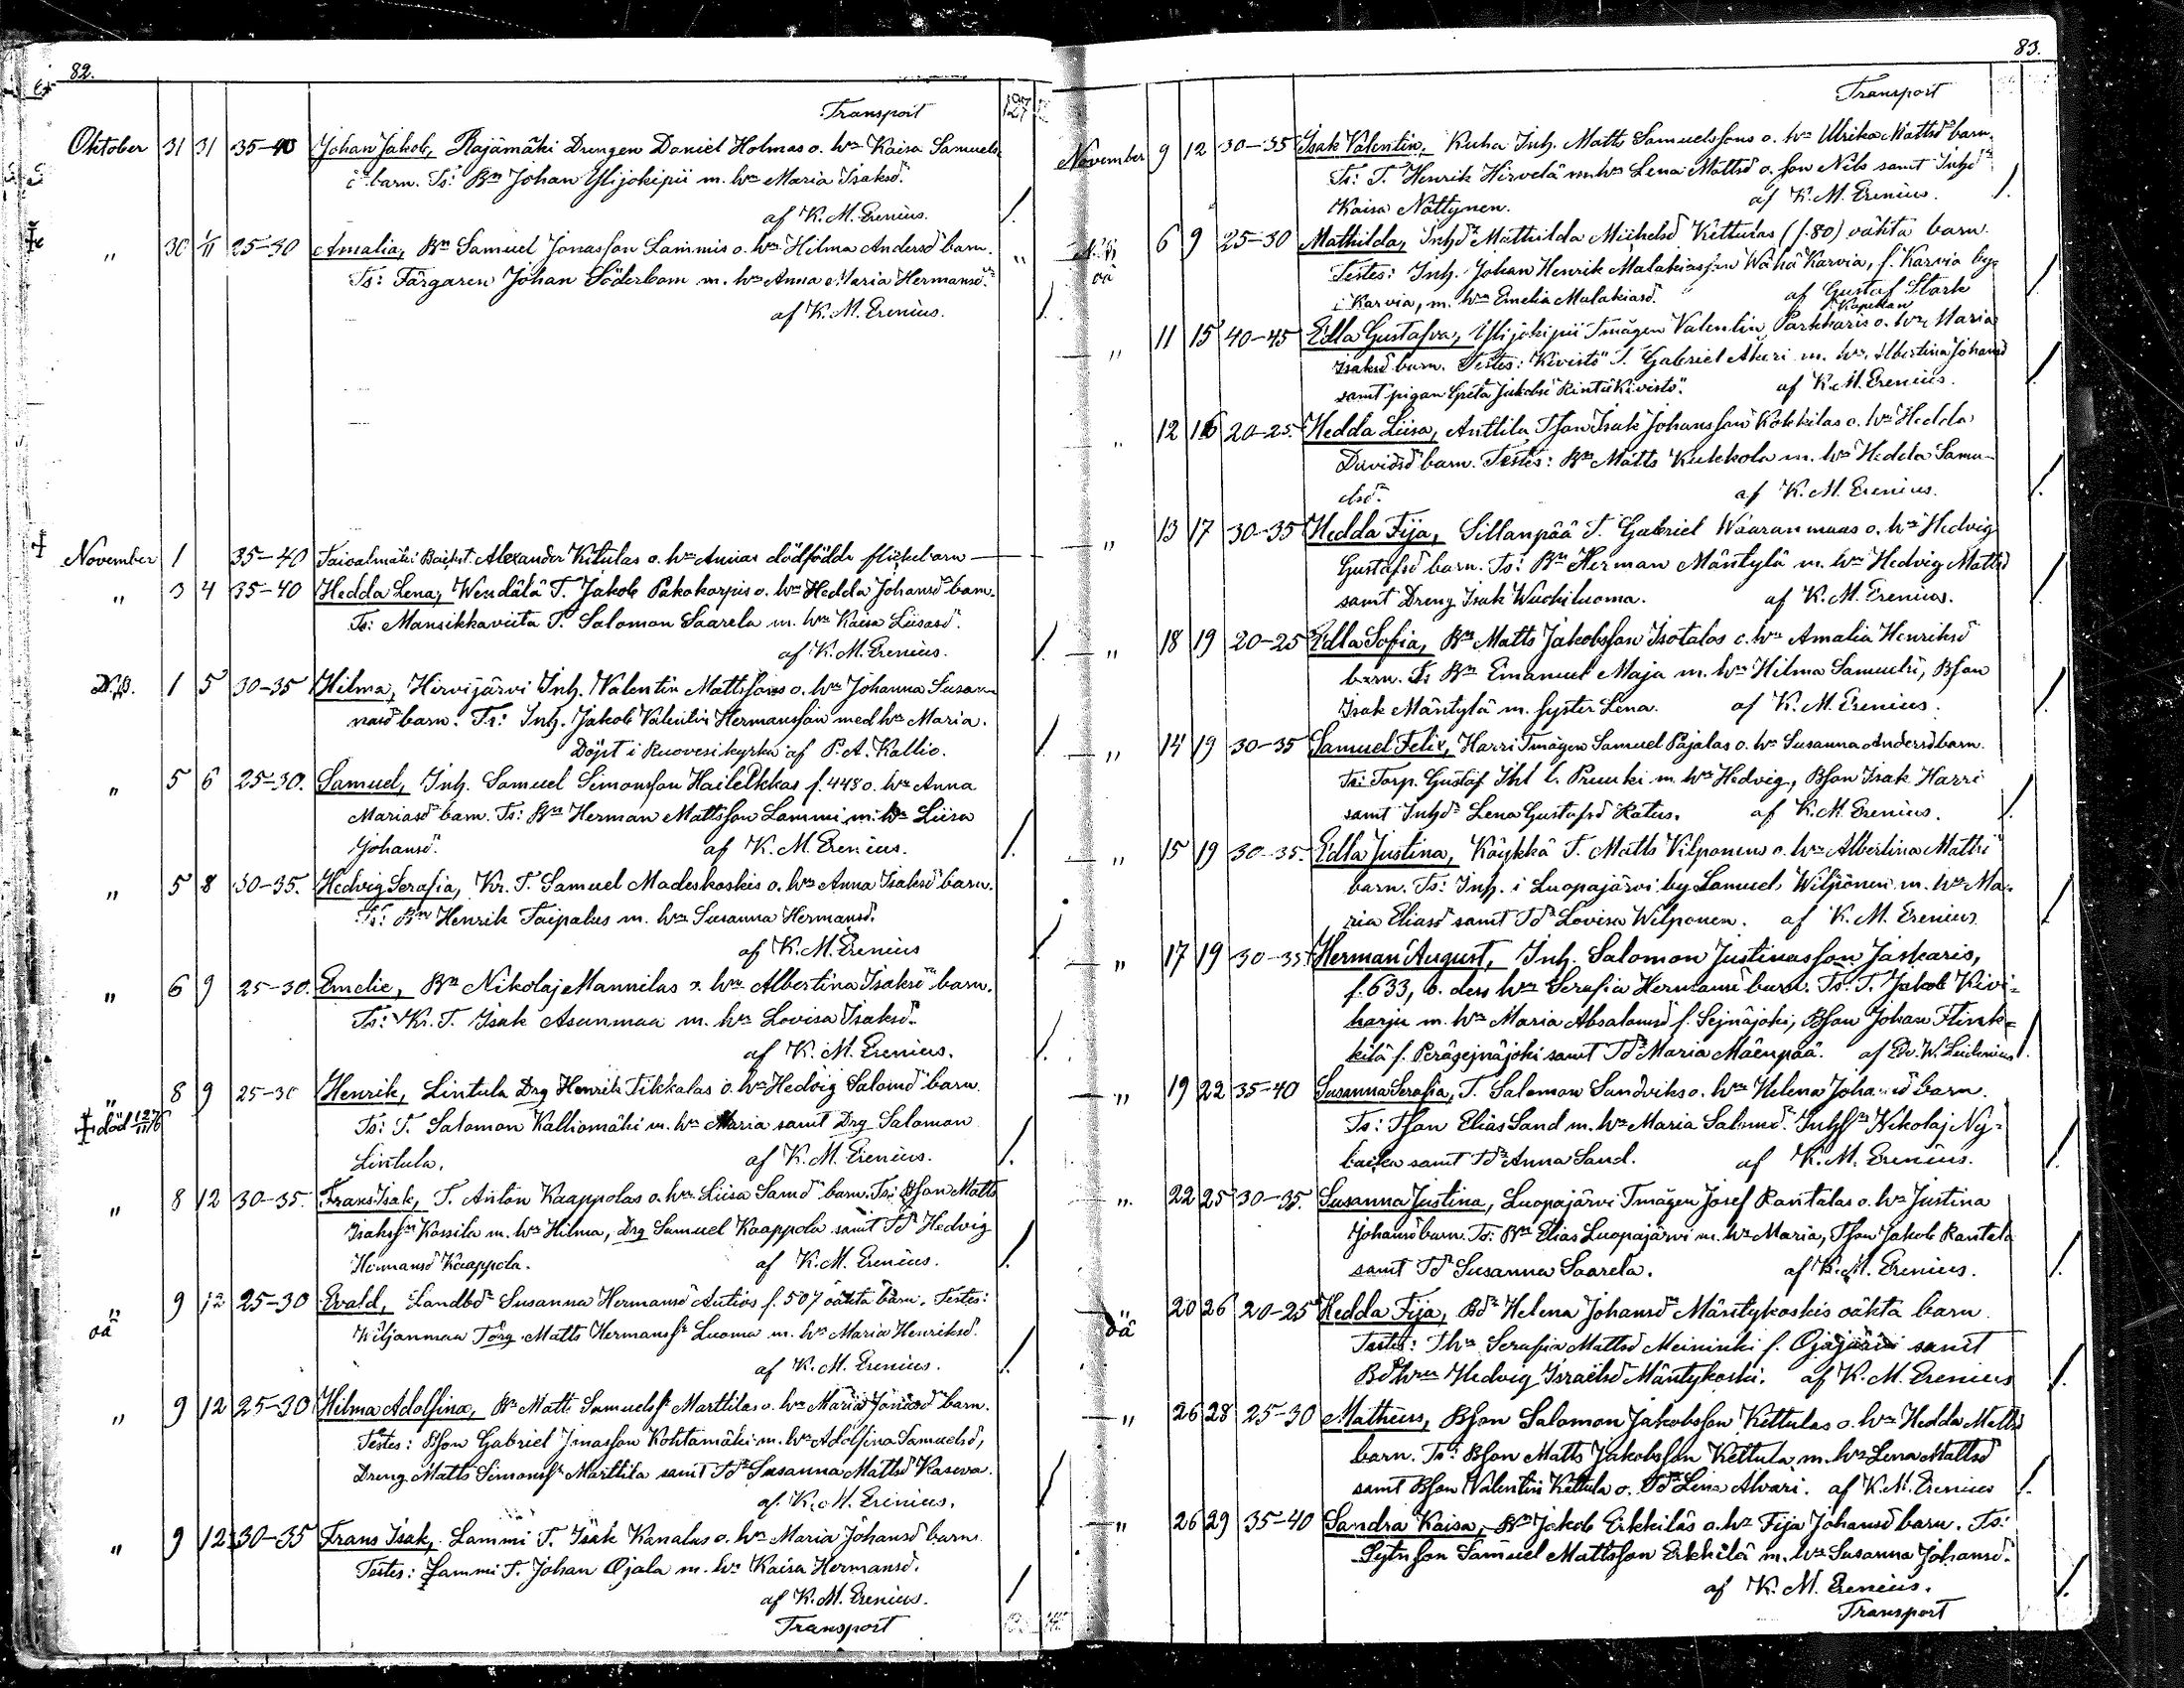 82.
Transport 127
Oktober 31 31 35-40 Johan Jakob, Rajämäki Drengen Daniel Holmas o. hn Kaisa Samuels
barn. Ts: Bn Johan Ylijokipii m. hn Maria Isaksd.
af K. M. Erenius.
" 30 1/11 25-30 Amalia, Bn Samuel Jonasson Lammis o. hn Hilma Andersd barn.
Ts: Färgaren Johan Söderbom m. hn Anna Maria Hermansd.
af K. M. Erenius.
November 1 35-40 Alexander Kitulas o. hn Annas dödfödda flickebarn
" 3 4 35-40 Hedda Lena, Wendälä T. Jakob Pakokorpis o. hn Hedda Johansd barn.
Ts: Mansikkaviita T. Salomon Saarela m. hn Kaisa Liisasd.
af K. M. Erenius.
1 5 30-35 Hilma, Hirvijärvi Inh. Valentin Mattssons o. hn Johanna Susan-
nasd barn. Ts: Inh. Jakob Valentin Hermansson med hn Maria.
Döpt i Ruovesi kyrka af P. A. Kallio.
" 5 6 25-30. Samuel, Inh. Samuel Simonsson Hailekkas f. 448 o. hn Anna
Mariasd barn. Ts: Bn Herman Mattsson Lammi m. hn Liisa
Johansd. af K. M. Erenius.
" 5 8 30-35. Hedvig Serafia, Kr. T. Samuel Madeskoskis o. hn Anna Isaksd barn.
Ts: Bn Henrik Taipalus m. hn Susanna Hermansd.
af K. M. Erenius
" 6 9 25-30. Emelie, Bn Nikolaj Mannilas o. hn Albertina Isaksd barn.
Ts: Kr. T. Isak Asunmaa m. hn Lovisa Isaksd.
af K. M. Erenius.
" 8 9 25-30 Henrik, Lintula Drg Henrik Tikkalas o. hn Hedvig Salomd barn.
död 12/11 76 Ts: T. Salomon Kalliomäki m. hn Maria samt Drg Salomon
Lintula. af K. M. Erenius.
" 8 12 30-35. Frans Isak, T. Anton Kaappolas o. hn Liisa Samd barn. Ts: Bson Matts
Isakssn Kossila m. hn Hilma, Drg Samuel Kaappola samt Td Hedvig
Hermansd Kaappola. af K. M. Erenius.
" 9 12 25-30 Evald, Landbd Susanna Hermansd Antios f. 507 oäkta barn. Testes:
oä Wiljanmaa Matts Hermanss Luoma m. hn Maria Henriksd.
af K. M. Erenius.
" 9 12 25-30 Hilma Adolfina, Bn Matts Samuelss Marttilas o. hn Maria Jonasd barn.
Testes: Bson Gabriel Kohtamäki m. hn Adolfina Samuelsd,
Dreng Matts Simonss Marttila samt Td Susanna Mattsd Kaseva.
af K. M. Erenius.
" 9 12 30-35 Frans Isak, Lammi T. Isak Kanalas o. hn Maria Johansd barn.
Testes: Lammi T. Johan Ojala m. hn Kaisa Hermansd.
af K. M. Erenius.
Transport
83.
Transport
November 9 12 30-35 Isak Valentin, Kuha Inh. Matts Samuelssons o. hn Ulrika Mattsd barn.
Ts: T. Henrik Hirvelä m. hn Lena Mattsd o. son Nils samt Inhd
Kaisa Nättynen. af K. M. Erenius.
6 9 25-30 Mathilda, Inhd Mathilda Michelsd Kettulas (f. 80) oäkta barn.
oä Testes: Inh. Johan Henrik Malakiasson Wähä Karvia, f. Karvia by
i Karvia, m. hn Emelia Malakiasd. af Gustaf Stark
Kapellan
" 11 15 40-45 Edla Gustafva, Ylijokipii Tmågen Valentin Parkkaris o. hn Maria
Isaksd barn. Testes: Kivistö T. Gabriel Akeri m. hn Albertina Johansd
samt pigan Greta Jakobsd Rintakivistö. af K. M. Erenius.
" 12 16 20-25. Hedda Liisa, Anttila Tson Isak Johansson Kokkilas o. hn Hedda
Davidsd barn. Testes: Bn Matts Kukkola m. hn Hedda Samu-
elsd. af K. M. Erenius.
" 13 17 30-35 Hedda Fija, Sillanpää T. Gabriel Waaranmaas o. hn Hedvig
Gustafsd barn. Ts: Bn Herman Mäntylä m. hn Hedvig Mattsd
samt Dreng Isak Wuohiluoma. af K. M. Erenius.
" 18 19 20-25 Edla Sofia, Bn Matts Jakobsson Isotalos o. hn Amalia Henriksd
barn. Ts Bn Emanuel Maja m. hn Hilma Samuelsd, Bson
Isak Mäntylä m. syster Lena. af K. M. Erenius.
" 14 19 30-35 Samuel Felix, Harri Tmågen Samuel Pajalas o. hn Susanna Andersd barn.
Ts: Torp. Gustaf Ihl l. Pruuki m. hn Hedvig, Bson Isak Harri
samt Inhd Lena Gustafsd Ratus. af K. M. Erenius.
" 15 19 30-35. Edla Justina, Köykkä T. Matts Vilponens o. hn Albertina Mattsd
barn. Ts: Inh. i Luopajärvi by Samuel Wilponen m. hn Ma-
ria Eliasd samt Td Lovisa Wilponen. af K. M. Erenius
" 17 19 30-35 Herman August, Inh. Salomon Justinasson Jaskaris,
f. 633, o. dess hn Serafia Hermansd barn. Ts: T. Jakob Kivi-
harju m. hn Maria Absalomsd f. Sejnäjoki, Bson Johan Flink-
kilä f. Peräsejnäjoki samt Td Maria Mäenpää. af
" 19 22 35-40 Susanna Serafia, T. Salomon Sandviks o. hn Helena Johansd barn.
Ts: Tson Elias Sand m. hn Maria Salomd. Nikolaj Ny-
backa samt Td Anna Sand. af K. M. Erenius.
" 22 25 30-35. Susanna Justina, Luopajärvi Tmågen Josef Rantalas o. hn Justina
Johansd barn. Ts: Bn Elias Luopajärvi m. hn Maria, Tson Jakob Rantala
samt Td Susanna Saarela. af K. M. Erenius.
" 20 26 20-25 Hedda Fija, Bd Helena Johansd Mäntykoskis oäkta barn.
oä Testes: Thn Serafia Mattsd Meininki f. Ojajärvi samt
Bdhrn Hedvig Israelsd Mäntykoski. af K. M. Erenius
" 26 28 25-30 Matheus, Bson Salomon Jakobsson Kettulas o. hn Hedda Mattsd
barn. Ts: Bson Matts Jakobsson Kettula m. hn Lena Mattsd
samt Bson Valentin Kettula o. Td Lena Alvari. af K. M. Erenius
" 26 29 35-40 Sandra Kaisa, Bn Jakob Erkkiläs o. hn Fija Johansd barn. Ts:
Sytnson Samuel Mattsson Erkkilä m. hn Susanna Johansd.
af K. M. Erenius.
Transport